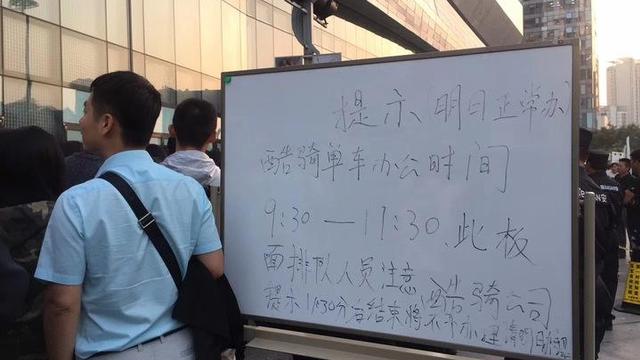 提示(明日正常办)
酷骑单车办公时间
9:30—17:30.此板
面排队人员注意(酷骑公司
提示17:30分后结束将不办理请明日